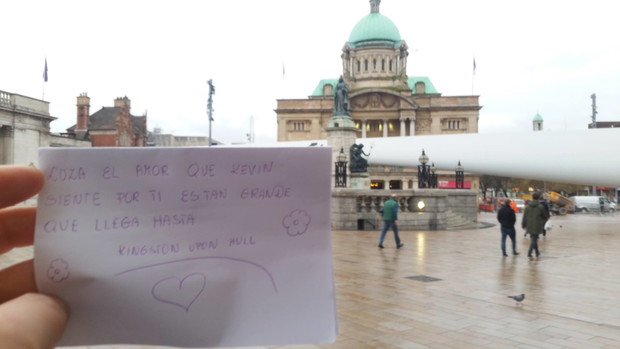 EL AMOR QUE KEVIN
SIENTE POR TI ES TAN GRANDE
QUE LLEGA HASTA
KINGSTON UPON HULL